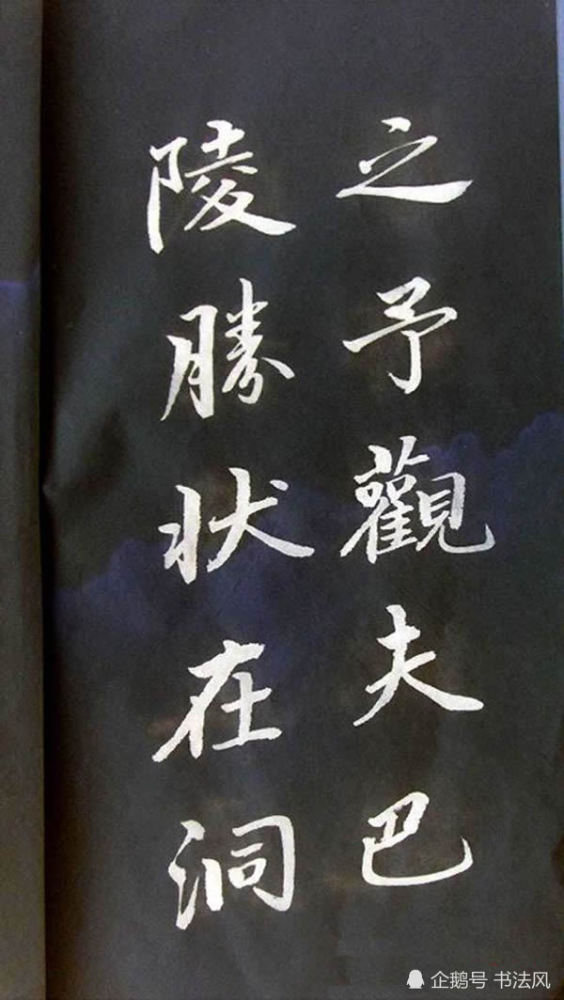 之予觀夫巴
陵勝状在洞
企鹅号 书法风